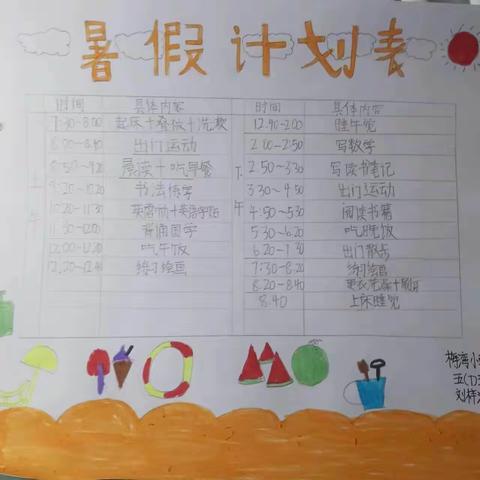 暑假计划表
时间 具体内容 时间 具体内容
7:30-8:00 起床+叠被+洗漱 12:40-2:00 睡午觉
8:00-8:40 出门运动 2:00-2:50 写数学
8:50-9:20 晨读+吃早餐 2:50-3:30 写读书笔记
9:20-10:20 书法练字 3:30-4:50 出门运动
10:20-11:30 4:50-5:30 阅读书籍
11:30-12:00 背诵国学 5:30-6:20 吃晚饭
12:00-12:20 吃午饭 6:20-7:30 出门散步
12:20-12:40 练习绘画 7:30-8:20 练习绘画
8:20-8:40
8:40 上床睡觉
上午
下午
梅湾小
五(1)
刘梓